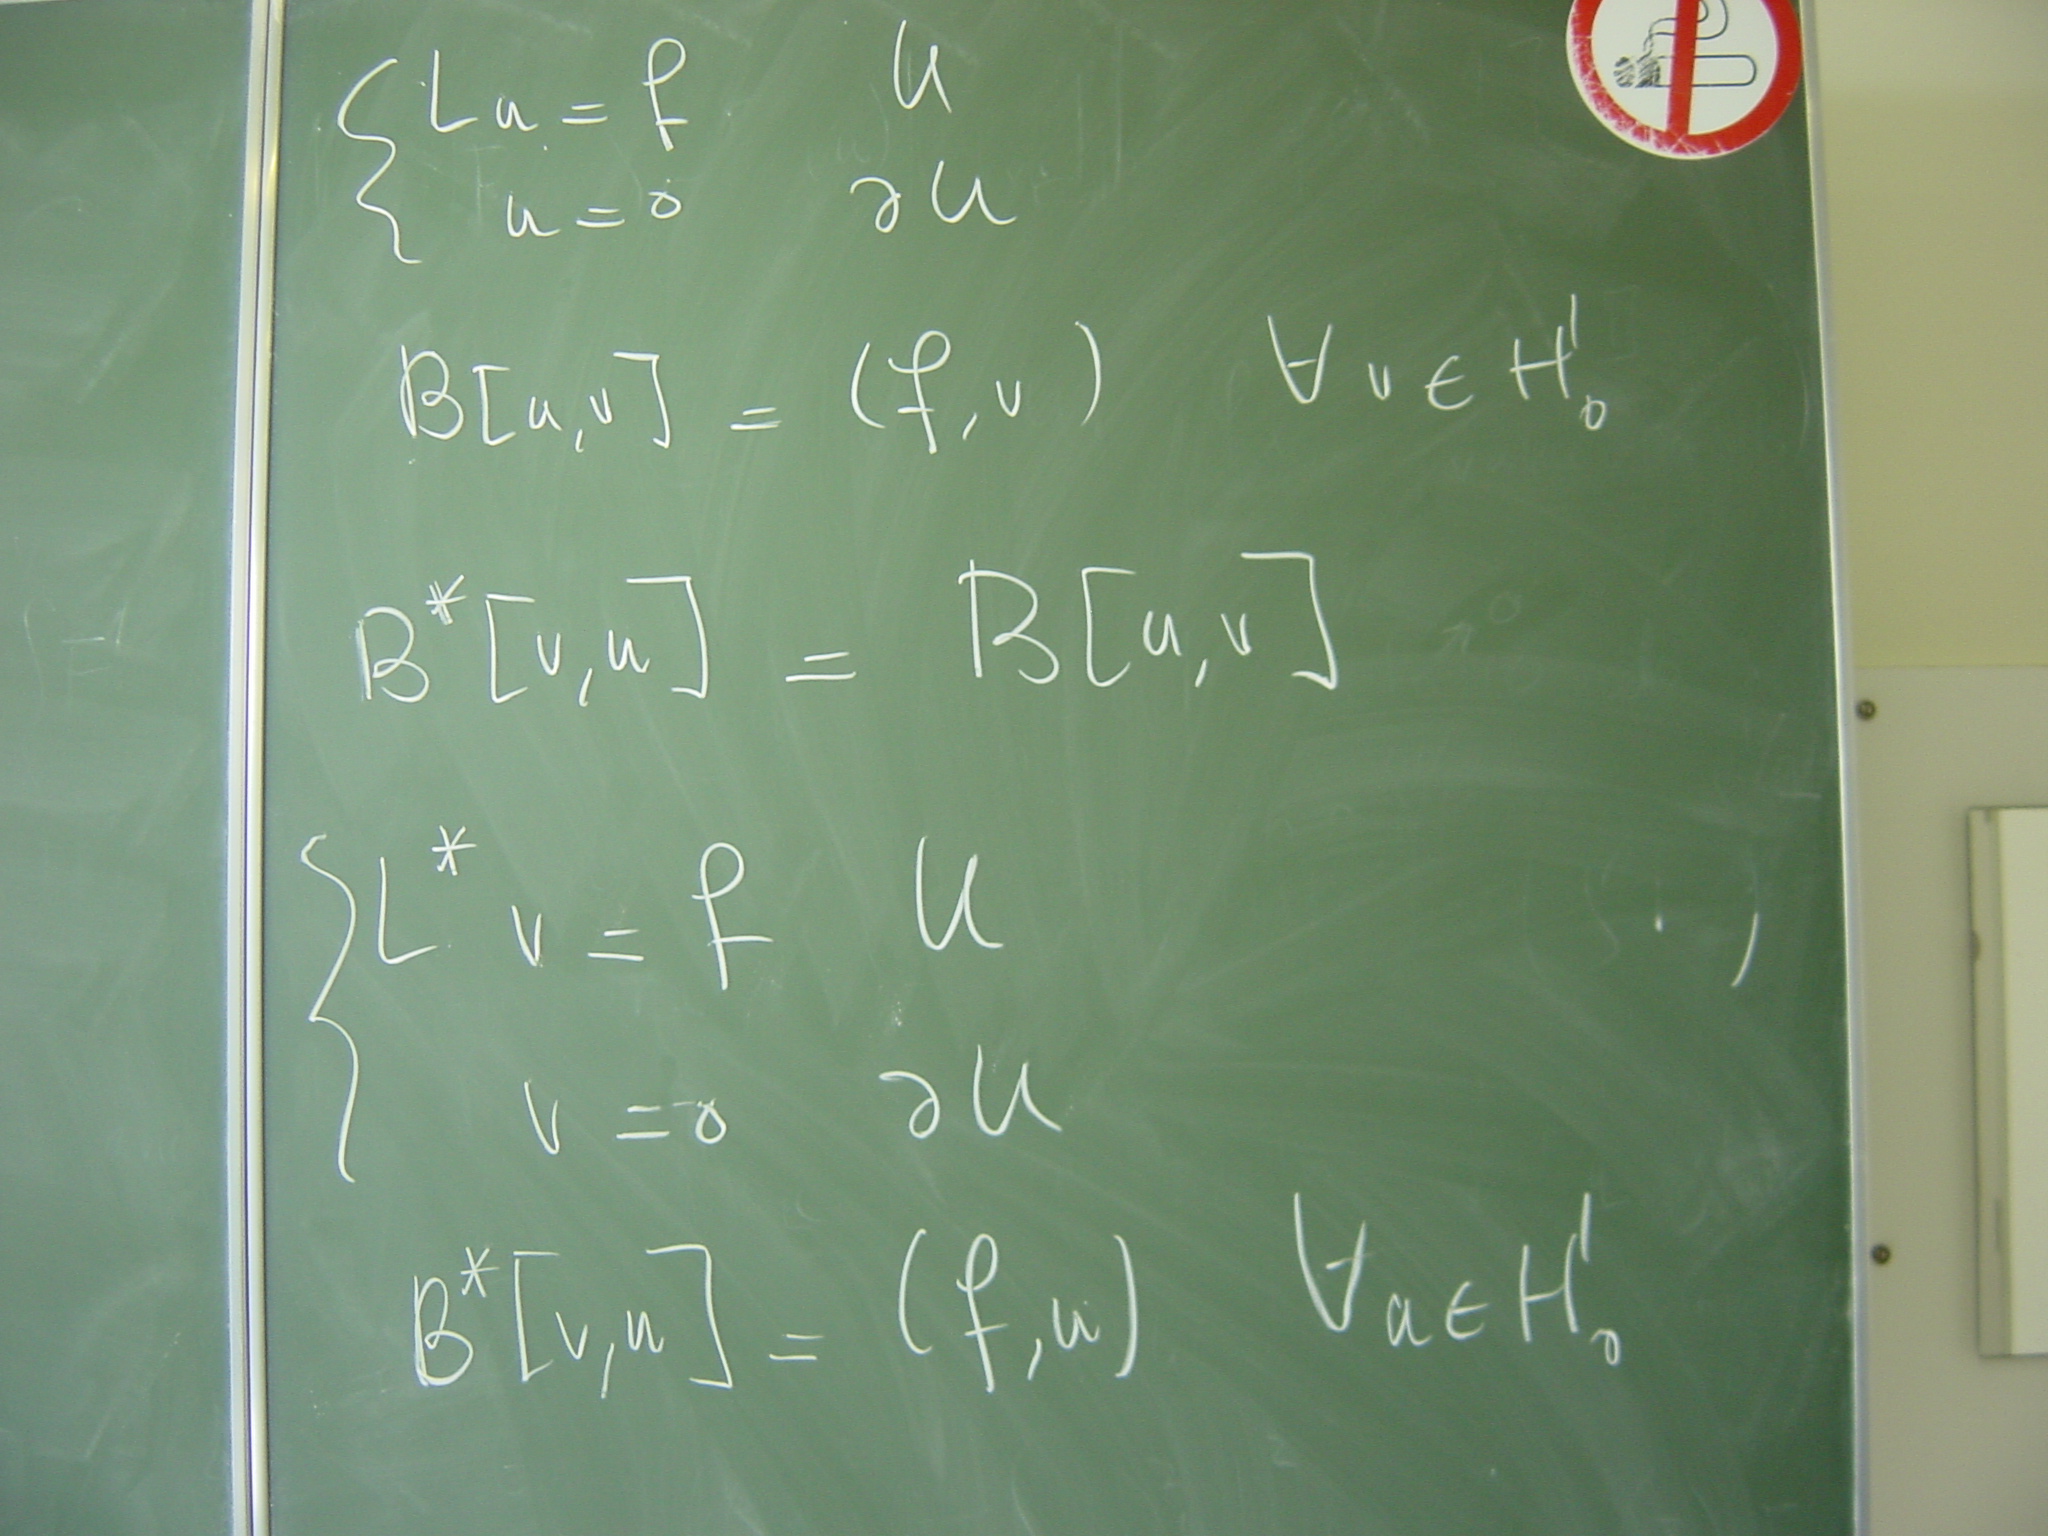 { Lu = f   U
u = 0   ∂U
B[u,v] = (f,v)   ∀ v ∈ H¹₀
B*[v,u] = B[u,v]
{ L* v = f   U
v = 0   ∂U
B*[v,u] = (f,u)   ∀ u ∈ H¹₀